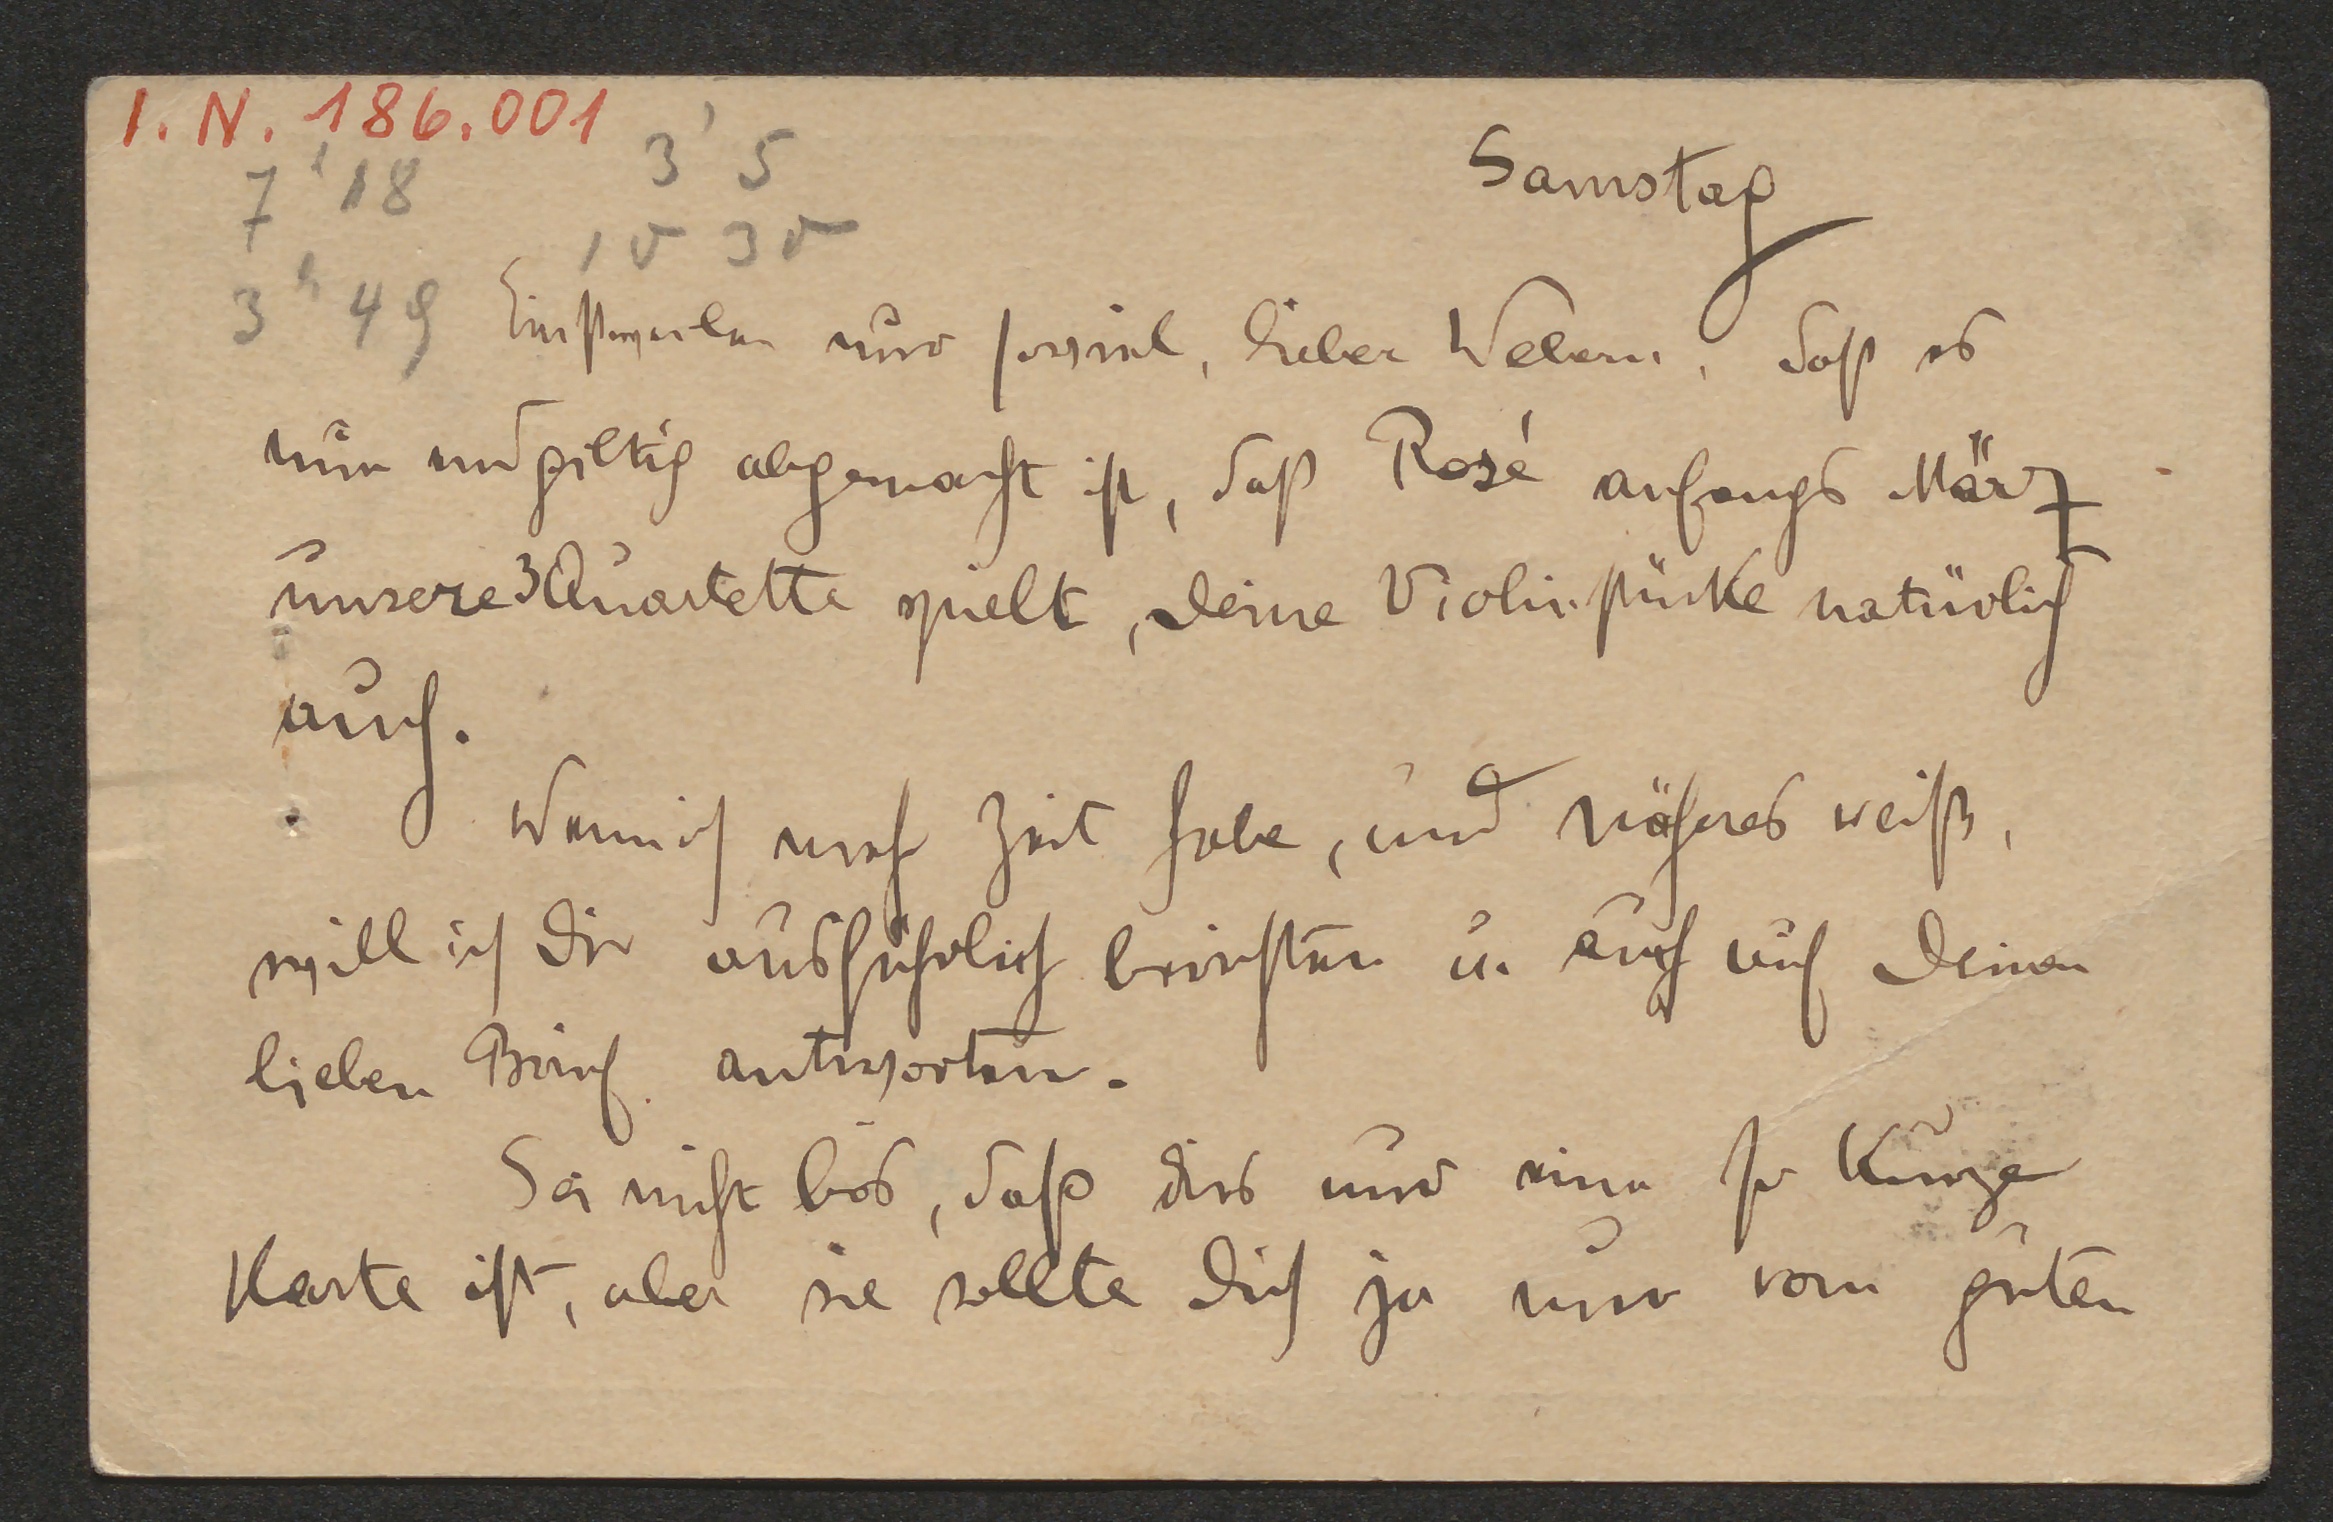 I. N. 186.001
3' 5
Samstag
7' 18
3h 49
Einstweilen nur soviel, lieber Webern, daß es
nun endgiltig abgemacht ist, daß Rosé anfangs März
unsere 3 Quartette spielt, deine Violinstücke natürlich
auch.
Wenn ich mehr Zeit habe, und näheres weiß,
will ich Dir ausführlich berichten u. auch auf Deinen
lieben Brief antworten.
Sei nicht bös, daß dies nur eine so kurze
Karte ist, aber sie sollte Dich ja nur vom guten